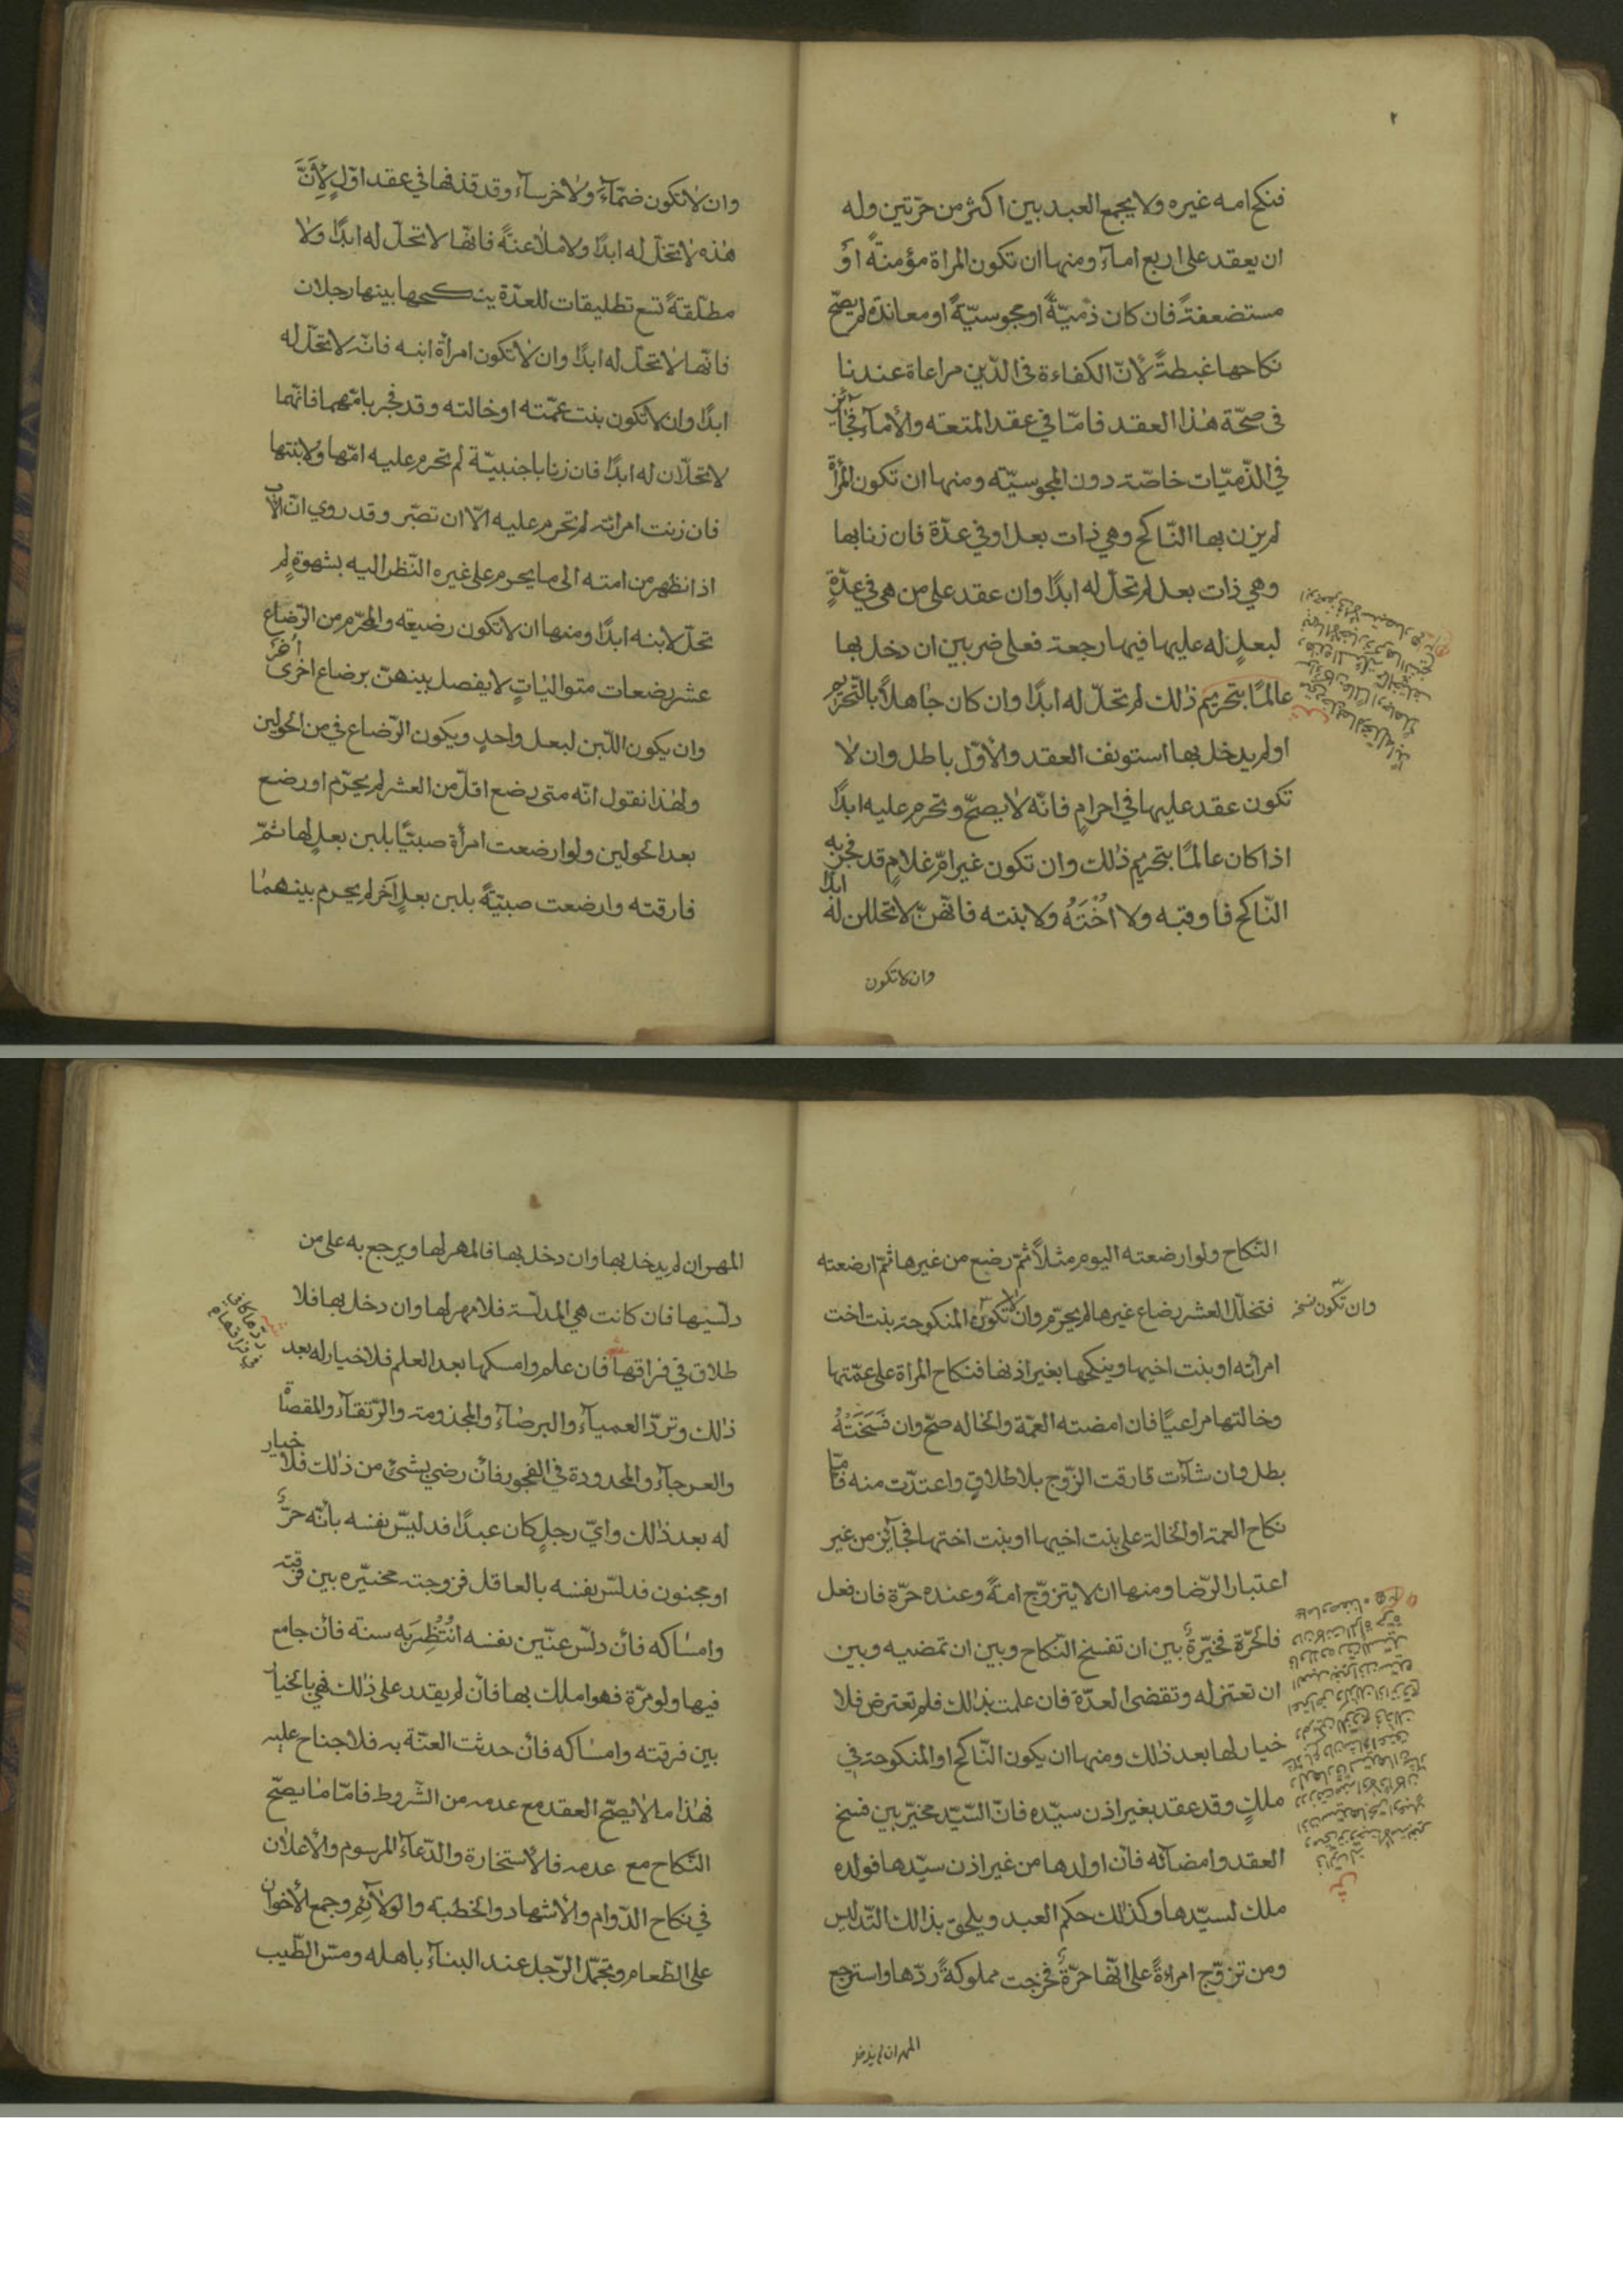 ٢
فنكح امه غيره ولا يجمع العبد بين اكثر من حرّتين وله
ان يعقد على اربع امآء ومنها ان تكون المراة مؤمنةً اوْ
مستضعفةً فان كان ذمّيّةً او مجوسيّةً او معاندة لم يصحّ
نكاحها غبطةً لأنّ الكفاءة فى الدّين مراعاة عندنا
فى صحّة هٰذا العقد فامّا في عقد المتعه والأمآء فجآئز
في الذّميّات خاصّة دون المجوسيّه ومنها ان تكون المرأة
لم يزن بها النّاكح وهي ذات بعل او في عدّة فان زنا بها
وهي ذات بعل لم تحلّ له ابدًا وان عقد على من هى في عدّةٍ
لبعلٍ له عليها فيها رجعة فعلى ضربين ان دخل بها
عالمًا بتحريم ذٰلك لم تحلّ له ابدًا وان كان جاهلاً بالتّحريم
او لم يدخل بها استونف العقد والأوّل باطل وان لا
تكون عقد عليها في احرامٍ فانّه لا يصحّ وتحرم عليه ابدًا
اذا كان عالمًا بتحريم ذٰلك وان تكون غير امّ غلامٍ قد فجر به
النّاكح فاوقبه ولا اُخْتَهُ ولا بنته فانّهنّ لا تحللن له ابدًا
وان لا تكون
وان لا تكون صمّآءَ ولا خرسآء وقد قذفها في عقد اوّلٍ لِأَنَّ
هٰذه لا تحلّ له ابدًا ولا ملاعنةً فانّها لا تحلّ له ابدًا ولا
مطلّقةً تسع تطليقات للعدّة ينكحها بينها رجلان
فانّها لا تحلّ له ابدًا وان لا تكون امرأة ابنه فانّه لا تحلّ له
ابدًا وان لا تكون بنت عمّته او خالته وقد فجر بامّهما فانّهما
لا تحلّان له ابدًا فان زنا باجنبيّة لم تحرم عليه امّها ولا بنتها
فان زنت امراته لم تحرم عليه الّا ان تصّر وقد روي انّ الأب
اذا نظهر من امته الى ما يحرم على غيره النّظر اليه بشهوةٍ لم
تحلّ لابنه ابدًا ومنها ان لا تكون رضيعه والمحرّم من الرّضاع
عشر رضعات متوالياتٍ لا يفصل بينهنّ برضاع اخرى
اُخَرَ
وان يكون اللّبن لبعل واحدٍ ويكون الرّضاع في من الحولين
ولهٰذا نقول انّه متى رضع اقلّ من العشر لم يحرّم او رضع
بعد الحولين ولو ارضعت امرأة صبيّا بلبن بعلٍ لها ثمّ
فارقته وارضعت صبيّةً بلبن بعلٍ آخر لم يحرم بينهما
النّكاح ولو ارضعته اليوم مثلاً ثمّ رضع من غيرها ثمّ ارضعته
فتخلّل العشر رضاع غيرها لم يحرّم وان لا تكون المنكوحة بنت اخت
وان تكون نسخ
امرأته او بنت اخيها وينكحها بغير اذنها فنكاح المراة على عمّتها
وخالتها مراعيًا فان امضته العمّة والخاله صحّ وان فَسَخَتْهُ
بطل وان شآءت فارقت الزّوج بلا طلاقٍ واعتدّت منه فامّا
نكاح العمة او الخالة على بنت اخيها او بنت اختها فجآئز من غير
اعتبار الرّضا ومنها ان لا يتزوّج امةً وعنده حرّة فان فعل
فالحرّة مخيّرةٌ بين ان تفسخ النّكاح وبين ان تمضيه وبين
ان تعتزله وتقضى العدّة فان علمت بذٰلك فلم تعترض فلا
خيار لها بعد ذٰلك ومنها ان يكون النّاكح او المنكوحة في
ملكٍ وقد عقد بغير اذن سيّده فانّ السّيّد مخيّر بين فسخ
العقد وامضآئه فان اولدها من غير اذن سيّدها فولده
ملك لسيّدها وكذٰلك حكم العبد ويلحق بذالك التّدليس
ومن تزوّج امراةً على انّها حرّةٌ فخرجت مملوكةً ردّها واسترجع
المهر ان لم يدخل
المهر ان لم يدخل بها وان دخل بها فالمهر لها ويرجع به على من
دلّسها فان كانت هي المدلّسة فلا مهر لها وان دخل بها فلا
طلاق في فراقها فان علم وامسكها بعد العلم فلا خيار له بعد
ذٰلك وتردّ العمياء والبرصآء والمجذومة والرّتقآء والمفضاة
والعرجآء والمحدودة في الفجور فان رضي بشىءٍ من ذٰلك فلا خيار
له بعد ذٰلك وايّ رجلٍ كان عبدًا فدلّس نفسه بأنّه حرٌّ
او مجنون فدلّس نفسه بالعاقل فزوجته مخيّره بين فرقته
وامساكه فان دلّس عنّين نفسه انْتُظِرَ به سنة فان جامع
فيها ولو مرّة فهو املك بها فان لم يقدر على ذٰلك فهي بالخيار
بين فرقته وامساكه فان حدثت العنّة به فلا جناح عليه
فهٰذا ما لا يصحّ العقد مع عدمه من الشّروط فامّا ما يصحّ
النّكاح مع عدمه فالأستخارة والدّعآء المرسوم والأعلان
في نكاح الدّوام والأشهاد والخطبة والولآئم وجمع الأخوان
على الطّعام وتجمّل الرّجل عند البنآء باهله ومسّ الطّيب